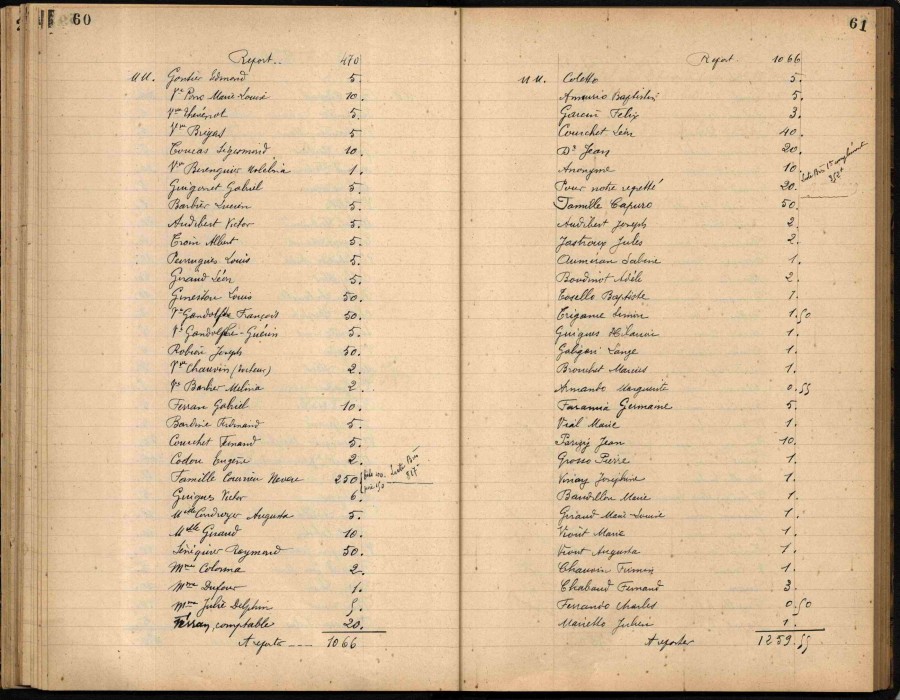 60
Report.. 470
MM. Gontier Edmond 5.
Vve Pons Marie Louise 10.
Vve Thévenot 5.
Vve Brigas 5
Toucas Sigismond 10.
Vve Berenguier 1.
Guigonet Gabriel 5.
Barbier Lucien 5.
Audibert Victor 5.
Troin Albert 5.
Peirrugues Louis 5.
Giraud Léon 5.
Ginestou Louis 50.
Vve Gandolphe François 50.
Vve Gandolphe-Guérin 5.
Robion Joseph 50.
Vve Chauvin (facteur) 2.
Vve Barbier Melinia 2.
Ferran Gabriel 10.
Bardine Ferdinand 5.
Courchet Fernand 5.
Codou Eugène 2.
Famille Courrieu Nevere 250
Guigues Victor 6.
Melle Augusta 5.
Melle Giraud 10.
Sénéquier Raymond 50.
Mme Colonna 2.
Mme Dufour 1.
Mme Julie Delphin 5.
Ferran, comptable 20.
A reporter ---- 1066
61
Report 1066
MM. Coletto 5.
Ameurio Baptistin 5.
Garcin Felix 3.
Courchet Léon 40.
Dr Jean 20.
Anonyme 10
Pour notre regretté 20.
Famille Capuro 50.
Audibert Joseph 2.
Jastroux Jules 2.
Aumeran Sabine 1.
Boudinot Adèle 2.
Tosello Baptiste 1.
Trigance 1.50
Guigues Hilarion 1.
Galizzi Lange 1.
Brouchet Marius 1.
Armando Marguerite 0.55
Faramia Germaine 5.
Vial Marie 1.
Parizy Jean 10.
Grosso Pierre 1.
Voiray Joséphine 1.
Baudillon Marie 1.
Giraud Marie-Louise 1.
Viout Marie 1.
Viout Augusta 1.
Chauvin Firmin 1.
Chabaud Fernand 3.
Ferrando Charles 0.50
Marietto Julien 1.
A reporter 1259.55